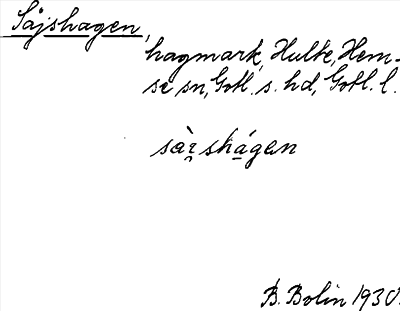 Sajshagen,
hagmark, Hulte, Hem-
se sn, Gotl. s. hd, Gotl. l.
sàɪ̯ shágan
B. Bolin 1930.